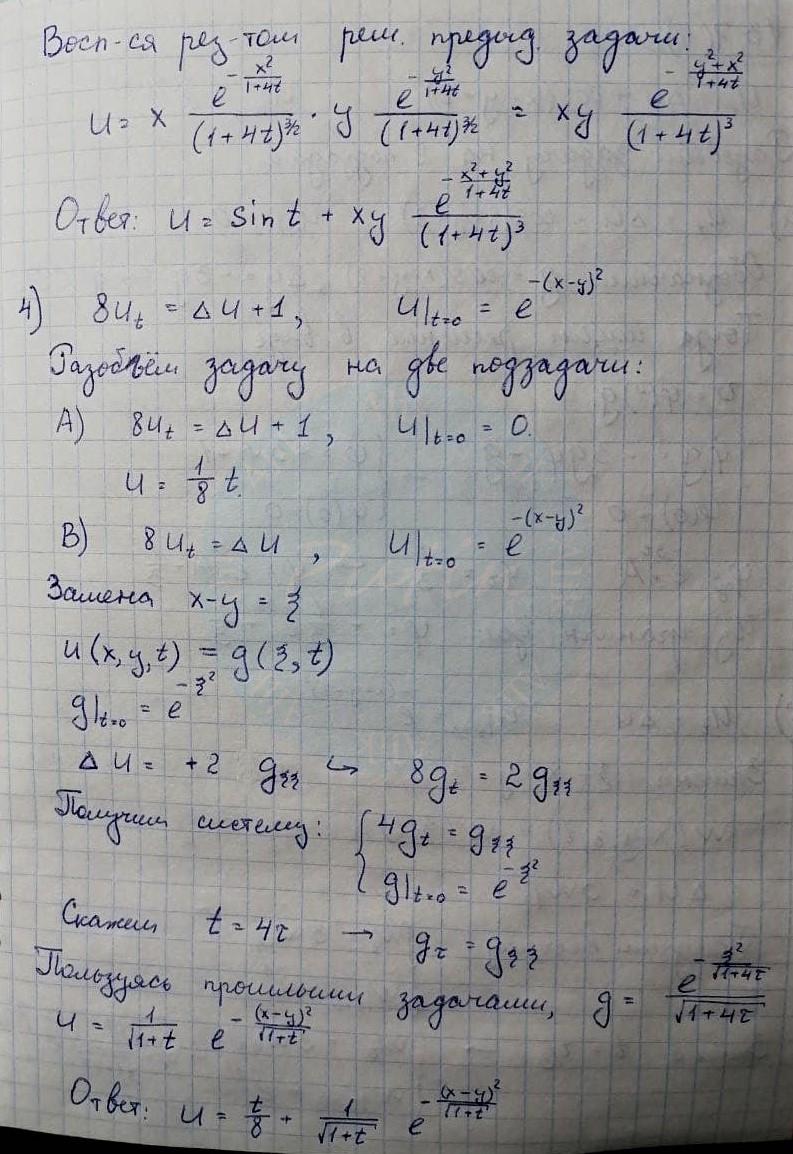 Восп-ся рез-том реш. предыд. задачи:
u = x e^{-x²/(1+4t)}/(1+4t)^{3/2} · y e^{-y²/(1+4t)}/(1+4t)^{3/2} = xy e^{-(y²+x²)/(1+4t)}/(1+4t)³
Ответ: u = sin t + xy e^{-(x²+y²)/(1+4t)}/(1+4t)³
4) 8u_t = Δu + 1, u|_{t=0} = e^{-(x-y)²}
Разобьём задачу на две подзадачи:
A) 8u_t = Δu + 1, u|_{t=0} = 0.
u = 1/8 t.
B) 8u_t = Δu, u|_{t=0} = e^{-(x-y)²}
Замена x-y = ξ
u(x,y,t) = g(ξ,t)
g|_{t=0} = e^{-ξ²}
Δu = +2 g_{ξξ} ↪ 8g_t = 2g_{ξξ}
Получим систему: { 4g_t = g_{ξξ}
g|_{t=0} = e^{-ξ²}
Скажем t = 4τ → g_τ = g_{ξξ}
Пользуясь прошлыми задачами, g = e^{-ξ²/√(1+4τ)}/√(1+4τ)
u = 1/√(1+t) e^{-(x-y)²/√(1+t)}
Ответ: u = t/8 + 1/√(1+t) e^{-(x-y)²/√(1+t)}